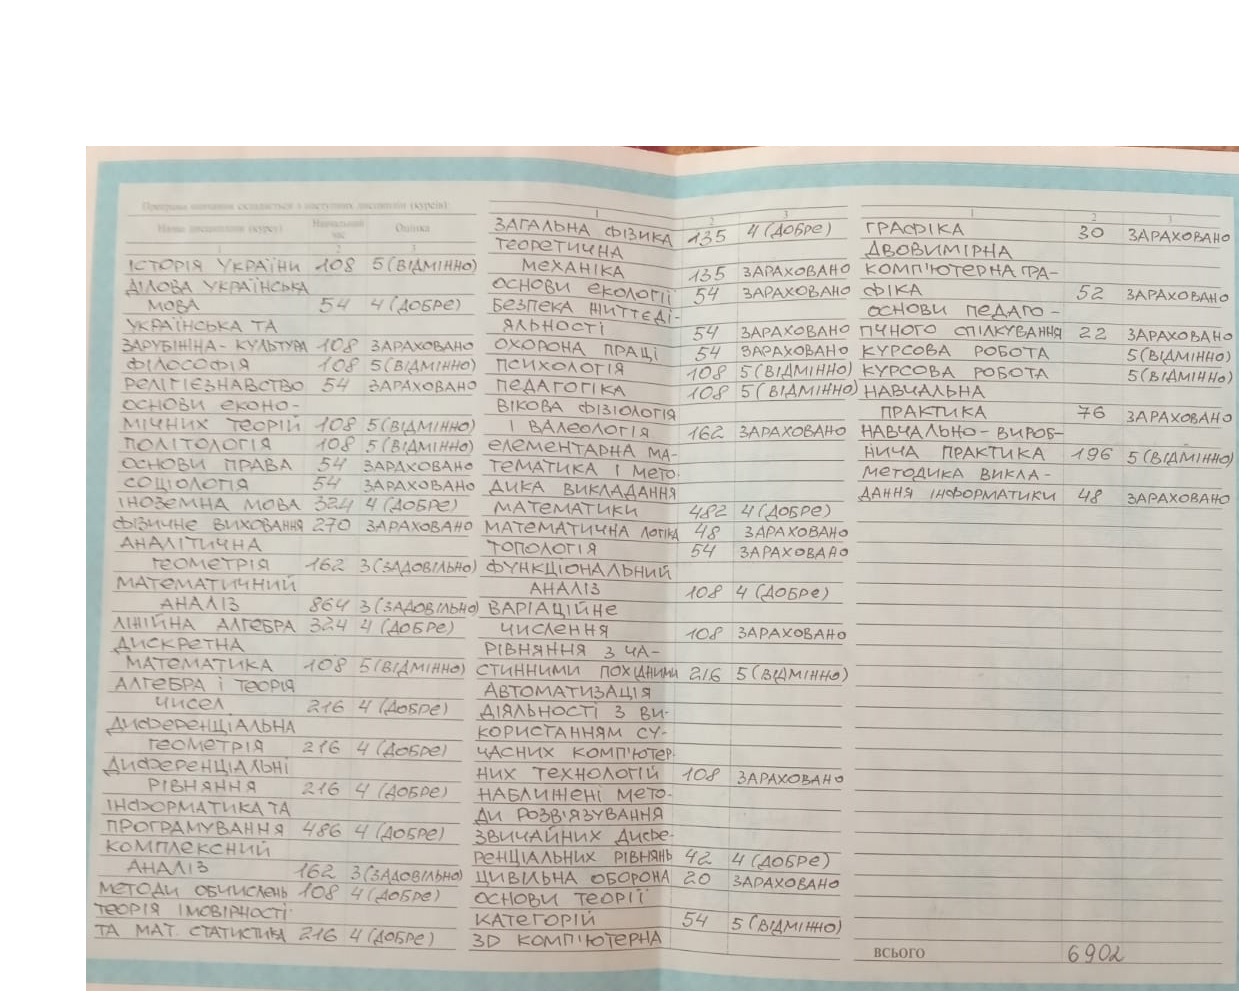 Програма навчання складається з наступних дисциплін (курсів):
Назва дисципліни (курсу) Навчальний час Оцінка
1 2 3
ІСТОРІЯ УКРАЇНИ 108 5 (ВІДМІННО)
ДІЛОВА УКРАЇНСЬКА
МОВА 54 4 (ДОБРЕ)
УКРАЇНСЬКА ТА
ЗАРУБІЖНА-КУЛЬТУРА 108 ЗАРАХОВАНО
ФІЛОСОФІЯ 108 5 (ВІДМІННО)
РЕЛІГІЄЗНАВСТВО 54 ЗАРАХОВАНО
ОСНОВИ ЕКОНО-
МІЧНИХ ТЕОРІЙ 108 5 (ВІДМІННО)
ПОЛІТОЛОГІЯ 108 5 (ВІДМІННО)
ОСНОВИ ПРАВА 54 ЗАРАХОВАНО
СОЦІОЛОГІЯ 54 ЗАРАХОВАНО
ІНОЗЕМНА МОВА 324 4 (ДОБРЕ)
ФІЗИЧНЕ ВИХОВАННЯ 270 ЗАРАХОВАНО
АНАЛІТИЧНА
ГЕОМЕТРІЯ 162 3 (ЗАДОВІЛЬНО)
МАТЕМАТИЧНИЙ
АНАЛІЗ 864 3 (ЗАДОВІЛЬНО)
ЛІНІЙНА АЛГЕБРА 324 4 (ДОБРЕ)
ДИСКРЕТНА
МАТЕМАТИКА 108 5 (ВІДМІННО)
АЛГЕБРА І ТЕОРІЯ
ЧИСЕЛ 216 4 (ДОБРЕ)
ДИФЕРЕНЦІАЛЬНА
ГЕОМЕТРІЯ 216 4 (ДОБРЕ)
ДИФЕРЕНЦІАЛЬНІ
РІВНЯННЯ 216 4 (ДОБРЕ)
ІНФОРМАТИКА ТА
ПРОГРАМУВАННЯ 486 4 (ДОБРЕ)
КОМПЛЕКСНИЙ
АНАЛІЗ 162 3 (ЗАДОВІЛЬНО)
МЕТОДИ ОБЧИСЛЕНЬ 108 4 (ДОБРЕ)
ТЕОРІЯ ІМОВІРНОСТІ
ТА МАТ. СТАТИСТИКА 216 4 (ДОБРЕ)
1 2 3
ЗАГАЛЬНА ФІЗИКА 135 4 (ДОБРЕ)
ТЕОРЕТИЧНА
МЕХАНІКА 135 ЗАРАХОВАНО
ОСНОВИ ЕКОЛОГІЇ 54 ЗАРАХОВАНО
БЕЗПЕКА ЖИТТЄДІ-
ЯЛЬНОСТІ 54 ЗАРАХОВАНО
ОХОРОНА ПРАЦІ 54 ЗАРАХОВАНО
ПСИХОЛОГІЯ 108 5 (ВІДМІННО)
ПЕДАГОГІКА 108 5 (ВІДМІННО)
ВІКОВА ФІЗІОЛОГІЯ
І ВАЛЕОЛОГІЯ 162 ЗАРАХОВАНО
ЕЛЕМЕНТАРНА МА-
ТЕМАТИКА І МЕТО-
ДИКА ВИКЛАДАННЯ
МАТЕМАТИКИ 482 4 (ДОБРЕ)
МАТЕМАТИЧНА ЛОГІКА 48 ЗАРАХОВАНО
ТОПОЛОГІЯ 54 ЗАРАХОВАНО
ФУНКЦІОНАЛЬНИЙ
АНАЛІЗ 108 4 (ДОБРЕ)
ВАРІАЦІЙНЕ
ЧИСЛЕННЯ 108 ЗАРАХОВАНО
РІВНЯННЯ З ЧА-
СТИННИМИ ПОХІДНИМИ 216 5 (ВІДМІННО)
АВТОМАТИЗАЦІЯ
ДІЯЛЬНОСТІ З ВИ-
КОРИСТАННЯМ СУ-
ЧАСНИХ КОМП'ЮТЕР-
НИХ ТЕХНОЛОГІЙ 108 ЗАРАХОВАНО
НАБЛИЖЕНІ МЕТО-
ДИ РОЗВ'ЯЗУВАННЯ
ЗВИЧАЙНИХ ДИФЕ-
РЕНЦІАЛЬНИХ РІВНЯНЬ 42 4 (ДОБРЕ)
ЦИВІЛЬНА ОБОРОНА 20 ЗАРАХОВАНО
ОСНОВИ ТЕОРІЇ
КАТЕГОРІЙ 54 5 (ВІДМІННО)
3D КОМП'ЮТЕРНА
1 2 3
ГРАФІКА 30 ЗАРАХОВАНО
ДВОВИМІРНА
КОМП'ЮТЕРНА ГРА-
ФІКА 52 ЗАРАХОВАНО
ОСНОВИ ПЕДАГО-
ГІЧНОГО СПІЛКУВАННЯ 22 ЗАРАХОВАНО
КУРСОВА РОБОТА 5 (ВІДМІННО)
КУРСОВА РОБОТА 5 (ВІДМІННО)
НАВЧАЛЬНА
ПРАКТИКА 76 ЗАРАХОВАНО
НАВЧАЛЬНО-ВИРОБ-
НИЧА ПРАКТИКА 196 5 (ВІДМІННО)
МЕТОДИКА ВИКЛА-
ДАННЯ ІНФОРМАТИКИ 48 ЗАРАХОВАНО
ВСЬОГО 6902